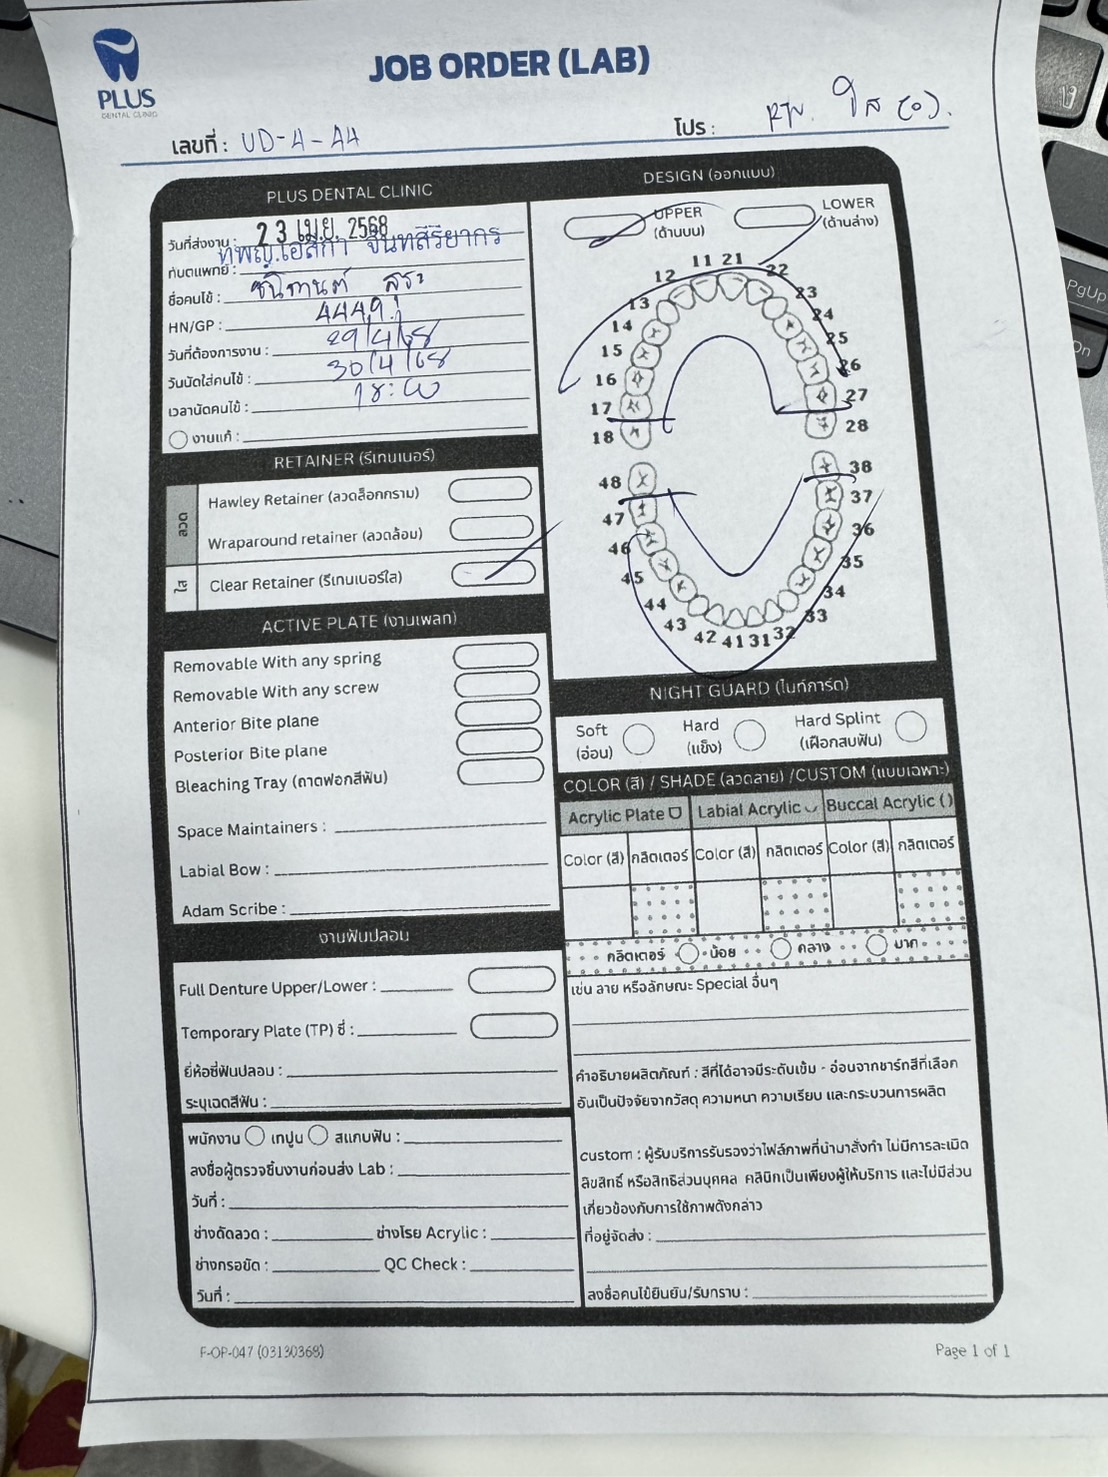 PLUS
DENTAL CLINIC
JOB ORDER (LAB)
เลขที่ : UD-4-A4
โปร : รท. ใส (0).
PLUS DENTAL CLINIC
วันที่ส่งงาน : 23 เม.ย. 2568
ทันตแพทย์ :
ชื่อคนไข้ :
HN/GP : 4449
วันที่ต้องการงาน : 29/4/68
วันนัดใส่คนไข้ : 30/4/68
เวลานัดคนไข้ : 18:00
งานแก้ :
RETAINER (รีเทนเนอร์)
ลวด
Hawley Retainer (ลวดล็อกกราม)
Wraparound retainer (ลวดล้อม)
ใส
Clear Retainer (รีเทนเนอร์ใส)
ACTIVE PLATE (งานเพลท)
Removable With any spring
Removable With any screw
Anterior Bite plane
Posterior Bite plane
Bleaching Tray (ถาดฟอกสีฟัน)
Space Maintainers :
Labial Bow :
Adam Scribe :
งานฟันปลอม
Full Denture Upper/Lower :
Temporary Plate (TP) ซี่ :
ยี่ห้อซี่ฟันปลอม :
ระบุเฉดสีฟัน :
พนักงาน เทปูน สแกนฟัน :
ลงชื่อผู้ตรวจชิ้นงานก่อนส่ง Lab :
วันที่ :
ช่างดัดลวด : ช่างโรย Acrylic :
ช่างกรอขัด : QC Check :
วันที่ :
DESIGN (ออกแบบ)
UPPER
(ด้านบน)
LOWER
(ด้านล่าง)
11 21
12 22
13 23
14 24
15 25
16 26
17 27
18 28
48 38
47 37
46 36
45 35
44 34
43 33
42 41 31 32
NIGHT GUARD (ไนท์การ์ด)
Soft
(อ่อน)
Hard
(แข็ง)
Hard Splint
(เฝือกสบฟัน)
COLOR (สี) / SHADE (ลวดลาย) /CUSTOM (แบบเฉพาะ)
Acrylic Plate Labial Acrylic Buccal Acrylic ( )
Color (สี) กลิตเตอร์ Color (สี) กลิตเตอร์ Color (สี) กลิตเตอร์
กลิตเตอร์ น้อย กลาง มาก
เช่น ลาย หรือลักษณะ Special อื่นๆ
คำอธิบายผลิตภัณฑ์ : สีที่ได้อาจมีระดับเข้ม - อ่อนจากชาร์ทสีที่เลือก
อันเป็นปัจจัยจากวัสดุ ความหนา ความเรียบ และกระบวนการผลิต
custom : ผู้รับบริการรับรองว่าไฟล์ภาพที่นำมาสั่งทำ ไม่มีการละเมิด
ลิขสิทธิ์ หรือสิทธิส่วนบุคคล คลินิกเป็นเพียงผู้ให้บริการ และไม่มีส่วน
เกี่ยวข้องกับการใช้ภาพดังกล่าว
ที่อยู่จัดส่ง :
ลงชื่อคนไข้ยินยัน/รับทราบ :
F-OP-047 (03130368)
Page 1 of 1
PgUp